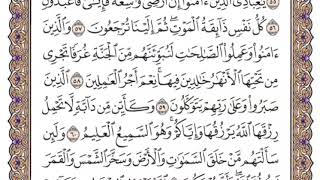 يَٰعِبَادِيَ ٱلَّذِينَ ءَامَنُوٓا۟ إِنَّ أَرْضِى وَٰسِعَةٌ فَإِيَّٰىَ فَٱعْبُدُونِ
٥٦ كُلُّ نَفْسٍ ذَآئِقَةُ ٱلْمَوْتِ ثُمَّ إِلَيْنَا تُرْجَعُونَ ٥٧ وَٱلَّذِينَ
ءَامَنُوا۟ وَعَمِلُوا۟ ٱلصَّٰلِحَٰتِ لَنُبَوِّئَنَّهُم مِّنَ ٱلْجَنَّةِ غُرَفًا تَجْرِى
مِن تَحْتِهَا ٱلْأَنْهَٰرُ خَٰلِدِينَ فِيهَا نِعْمَ أَجْرُ ٱلْعَٰمِلِينَ ٥٨ ٱلَّذِينَ
صَبَرُوا۟ وَعَلَىٰ رَبِّهِمْ يَتَوَكَّلُونَ ٥٩ وَكَأَيِّن مِّن دَآبَّةٍ لَّا تَحْمِلُ
رِزْقَهَا ٱللَّهُ يَرْزُقُهَا وَإِيَّاكُمْ وَهُوَ ٱلسَّمِيعُ ٱلْعَلِيمُ ٦٠ وَلَئِن
سَأَلْتَهُم مَّنْ خَلَقَ ٱلسَّمَٰوَٰتِ وَٱلْأَرْضَ وَسَخَّرَ ٱلشَّمْسَ وَٱلْقَمَرَ